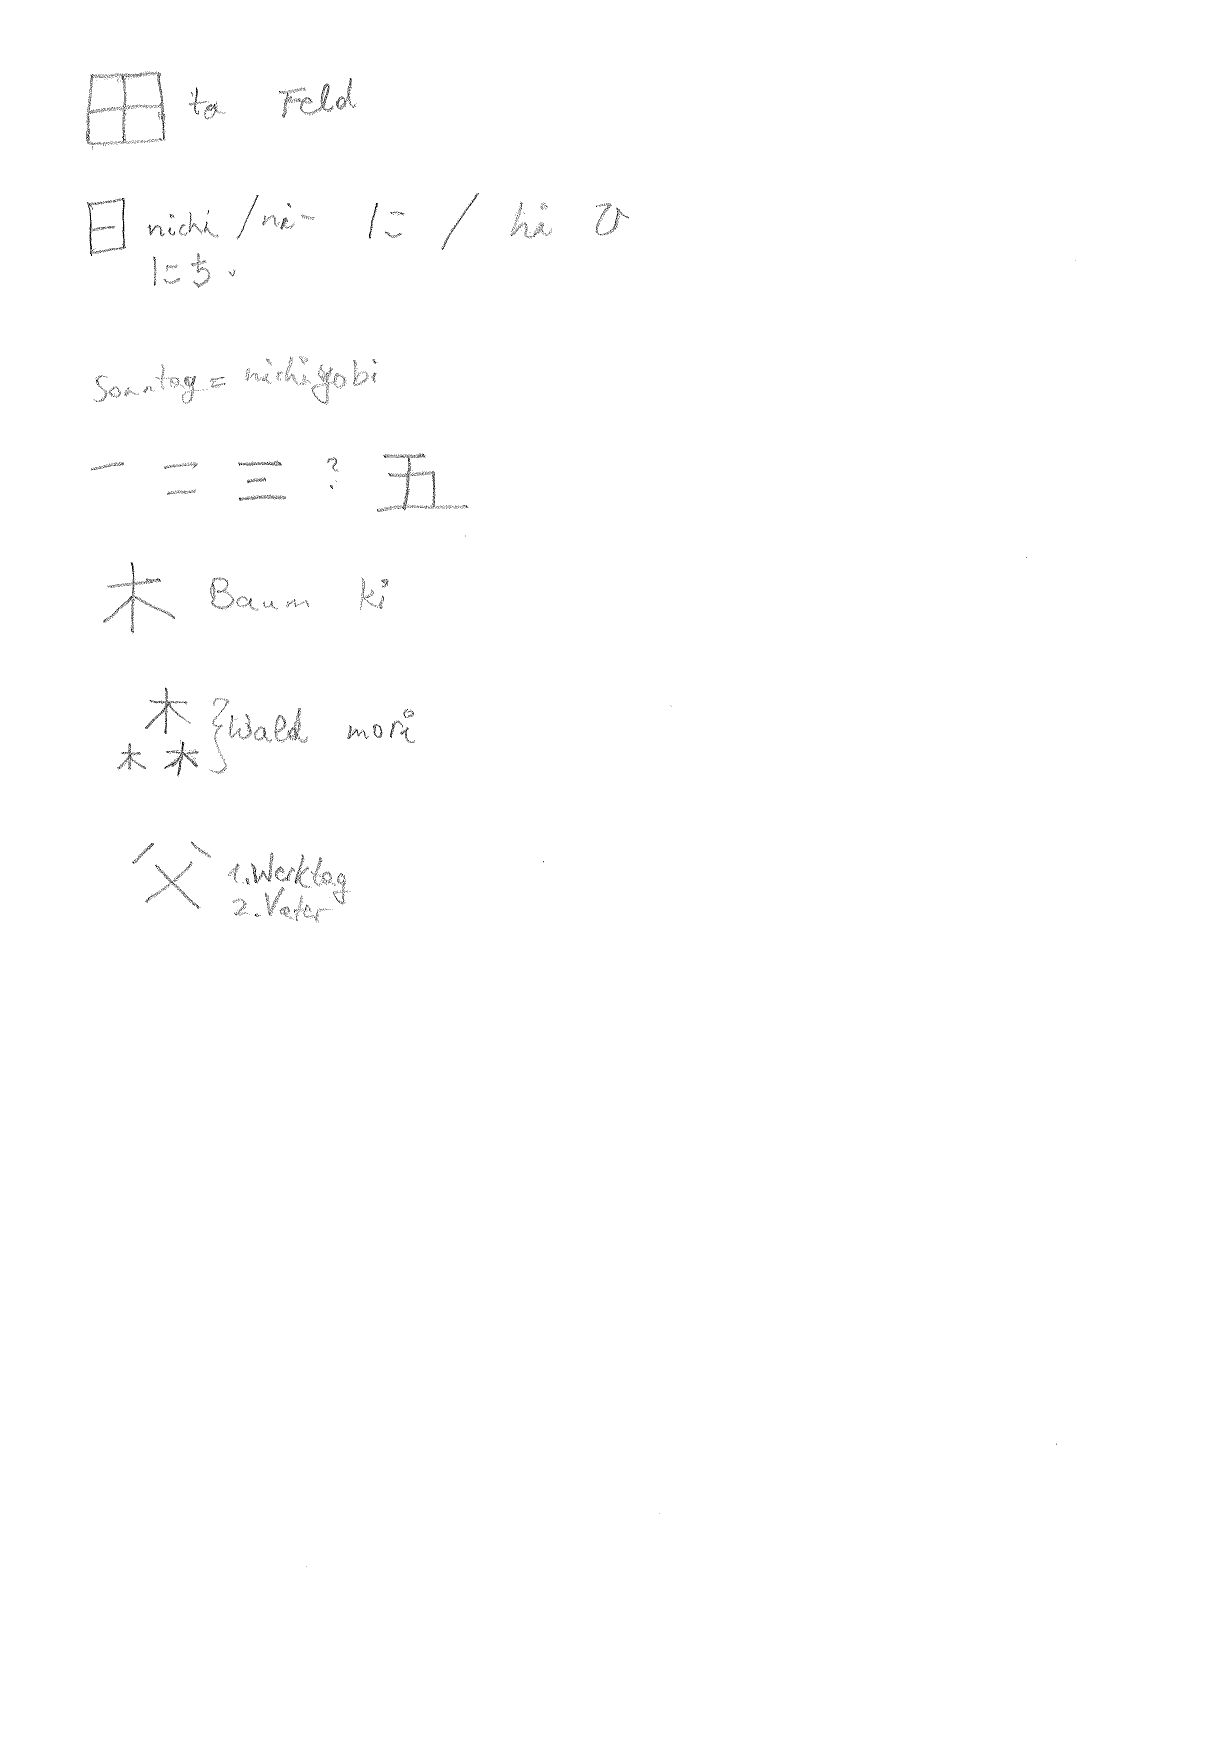 田 ta Feld
日 nichi / ni- に / hi ひ
にち.
Sonntag = nichiyobi
一 二 三 ? 五
木 Baum ki
森 } Wald mori
父 1. Werktag
2. Vater